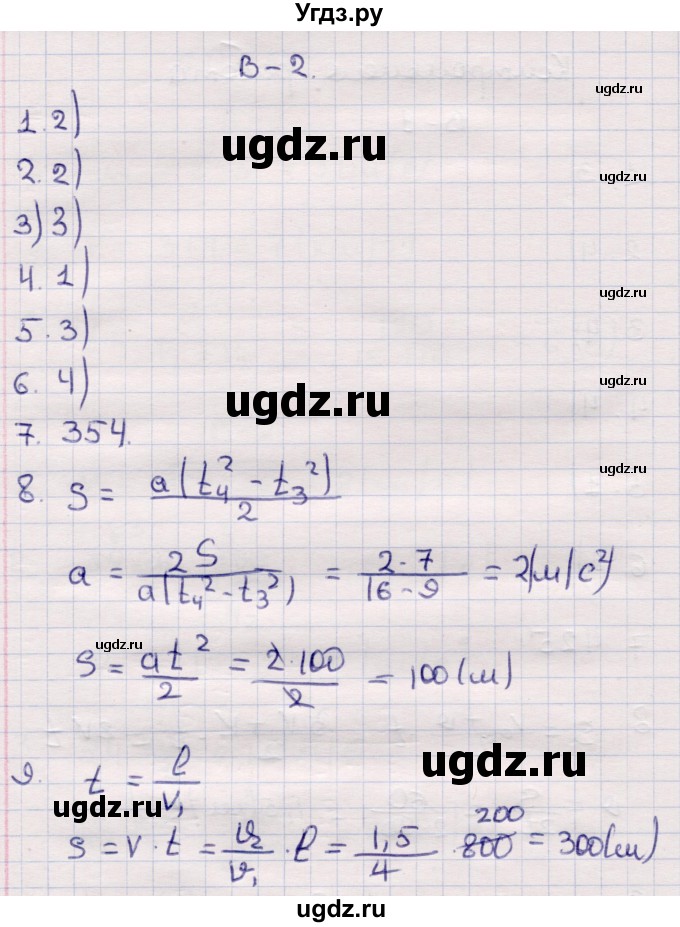 Угдз.ру
В-2.
ugdz.ru
1. 2)
ugdz.ru
2. 2)
ugdz.ru
3) 3)
4. 1)
ugdz.ru
5. 3)
6. 4)
ugdz.ru
ugdz.ru
7. 354.
ugdz.ru
8. S = a(t₄² - t₃²)/2
a = 2S/a(t₄² - t₃²) = 2·7/16-9 = 2(м/с²)
ugdz.ru
S = at²/2 = 2·100/2 = 100(м)
ugdz.ru
9. t = l/v₁
ugdz.ru
S = v·t = v₂/v₁ · l = 1,5/4 · 800 200 = 300(м)
ugdz.ru